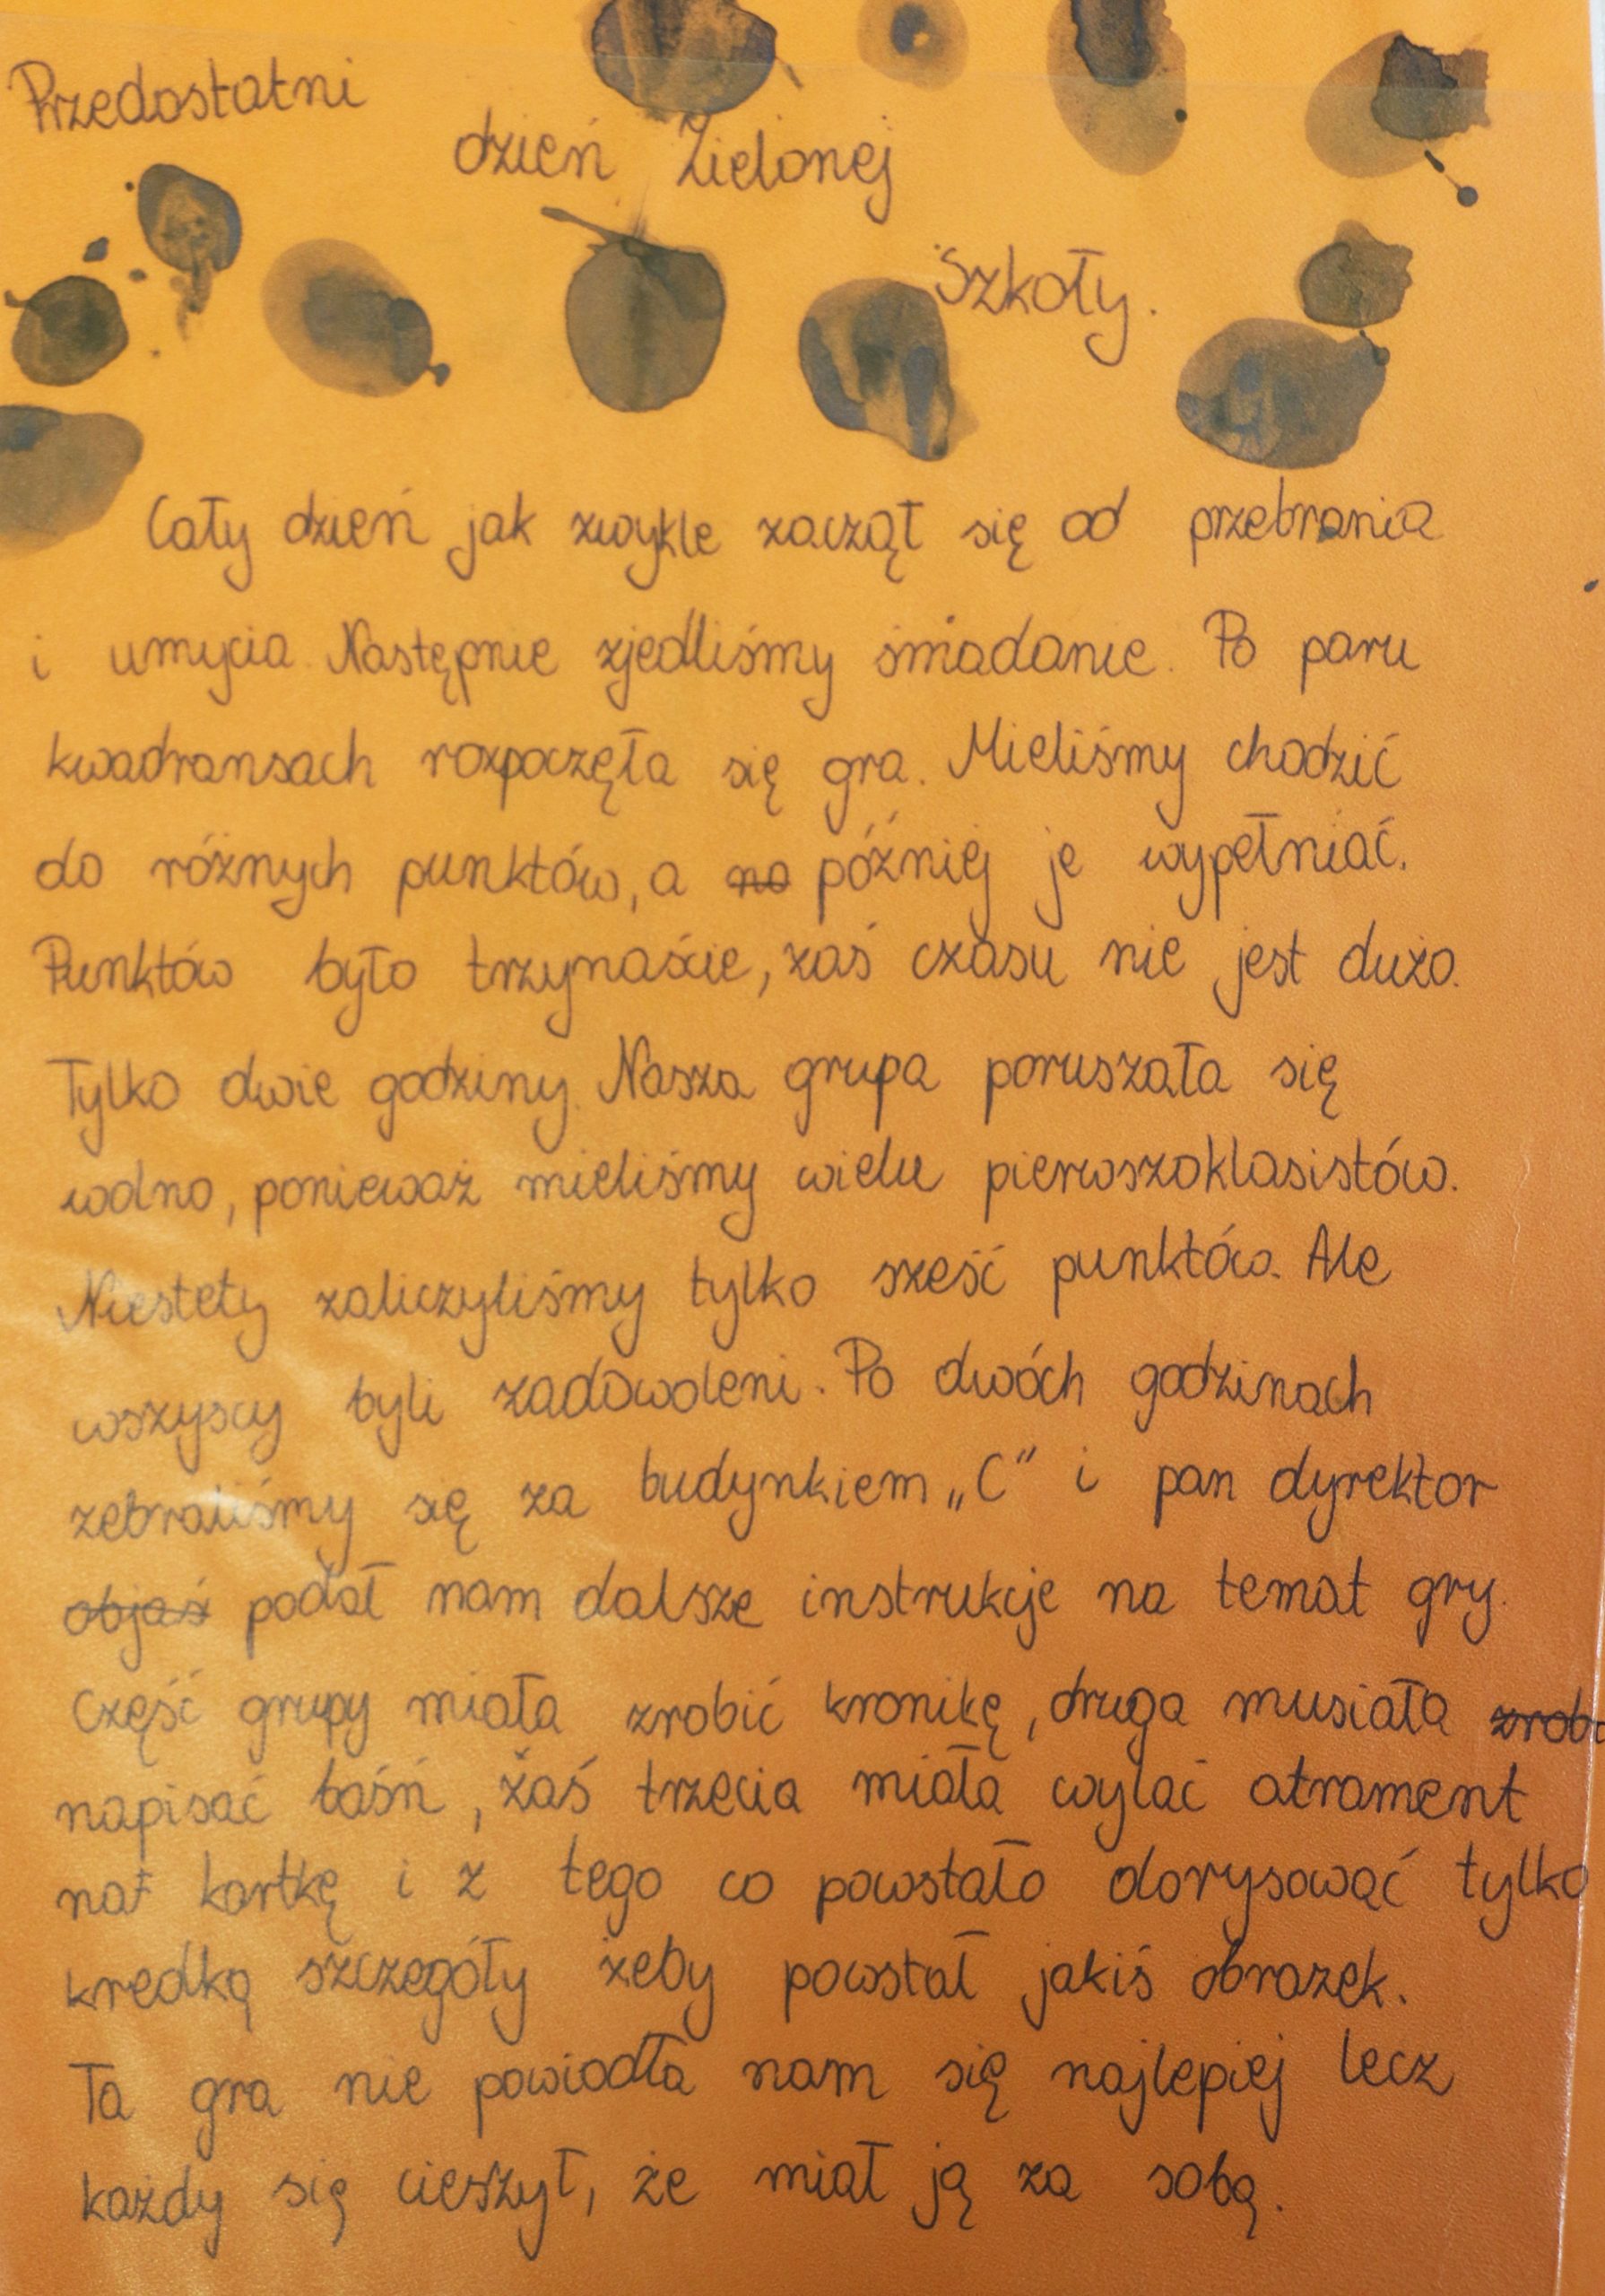 Przedostatni
dzień Zielonej
Szkoły.
Cały dzień jak zwykle zaczął się od przebrania
i umycia. Następnie zjedliśmy śniadanie. Po paru
kwadransach rozpoczęła się gra. Mieliśmy chodzić
do różnych punktów, a na później je wypełniać.
Punktów było trzynaście, zaś czasu nie jest dużo.
Tylko dwie godziny. Nasza grupa poruszała się
wolno, ponieważ mieliśmy wielu pierwszoklasistów.
Niestety zaliczyliśmy tylko sześć punktów. Ale
wszyscy byli zadowoleni. Po dwóch godzinach
zebraliśmy się za budynkiem „C” i pan dyrektor
objaś podał nam dalsze instrukcje na temat gry.
Część grupy miała zrobić kronikę, druga musiała zrob
napisać baśń, zaś trzecia miała wylać atrament
na kartkę i z tego co powstało dorysować tylko
kredką szczegóły żeby powstał jakiś obrazek.
Ta gra nie powiodła nam się najlepiej lecz
każdy się cieszył, że miał ją za sobą.